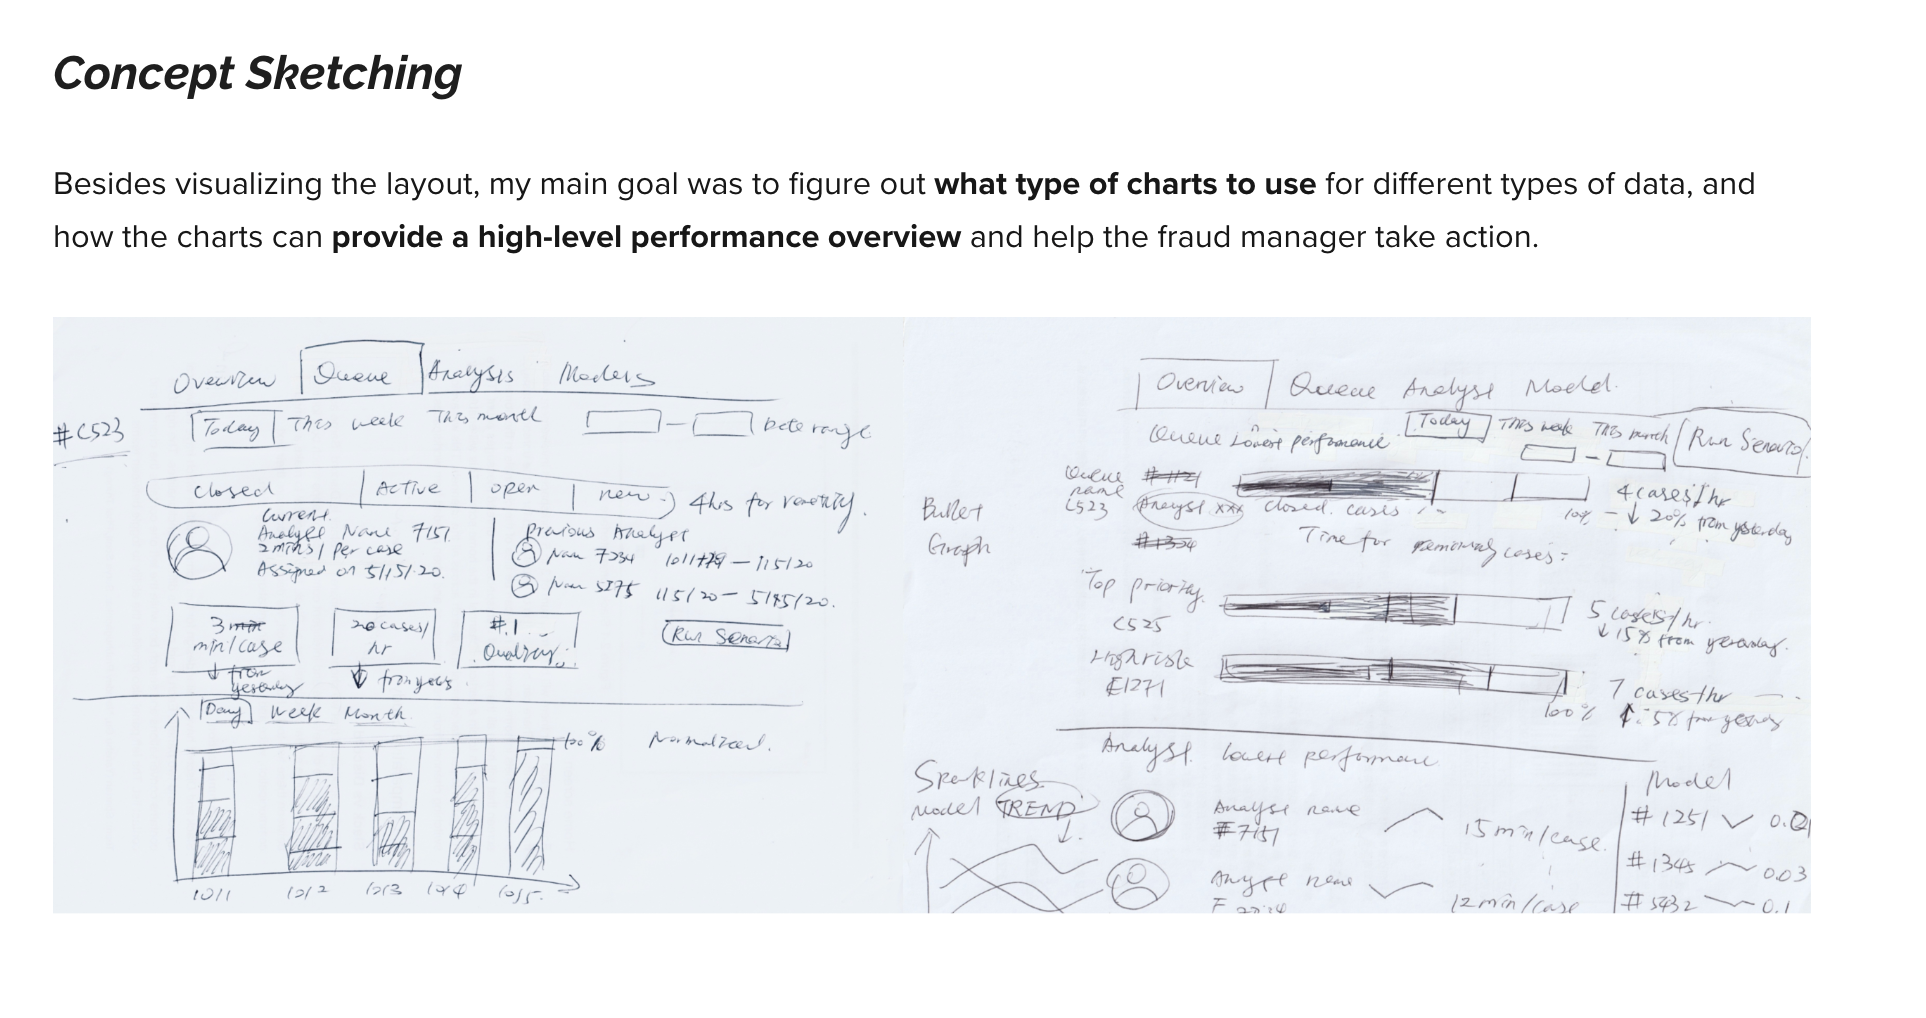 Concept Sketching
Besides visualizing the layout, my main goal was to figure out what type of charts to use for different types of data, and
how the charts can provide a high-level performance overview and help the fraud manager take action.
Overview Queue Analysis Models
#C523
Today This week This month
closed Active open new 4hrs for
Current
Analyst Name 7151
2mins/per case
Assigned on 5/15/20.
Previous Analyst
7234
5275
3 min/case
from yesterday
20 cases/
hr
#.1
Run
Day Week Month
100% Normalized.
10/1 10/2 10/3 10/4 10/5
Overview Queue Analyst Model
Today This week This month
Run
Queue Lowest performance
Queue
name
C523
#1121
Analyst xxx closed cases
#1324
4 cases/hr
↓ 20% from yesterday
Bullet
Graph
Time for cases:
Top priority
C525
5 cases/hr.
↓ 15% from yesterday.
High risk
E1271
100%
7 cases/hr
5% from yesterday
Analyst lowest performance
Sparklines
Model TREND
Analyst name
#7151
15 min/case.
name
12 min/case
Model
#1251
#1345 0.03
#5432 0.1